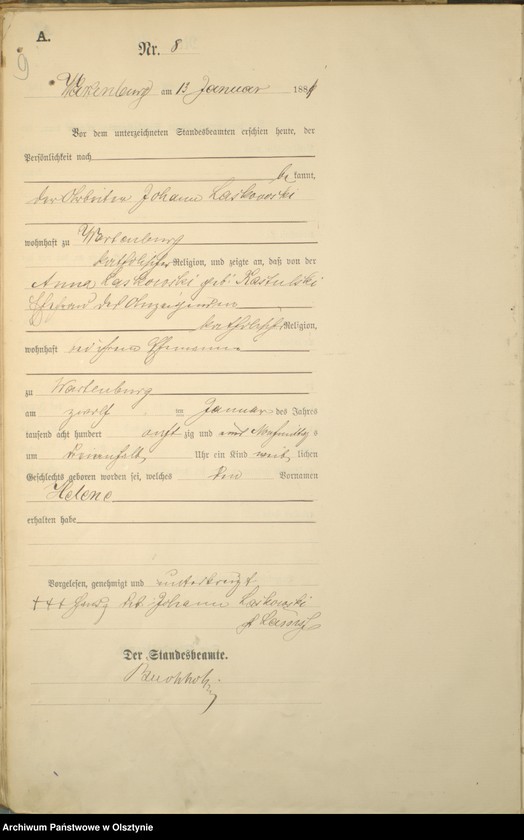 A.
Nr. 8
9
Wartenburg am 13 Januar 188
Vor dem unterzeichneten Standesbeamten erschien heute, der
Persönlichkeit nach
be kannt,
der Arbeiter Johann Laskowski
wohnhaft zu Wartenburg
katholischer Religion, und zeigte an, daß von der
Anna Laskowski geb.
Ehefrau des Anzeigenden
katholischer Religion,
wohnhaft bei ihrem Ehemanne
zu Wartenburg
am zwölf ten Januar des Jahres
tausend acht hundert acht zig und
um Uhr ein Kind weib lichen
Geschlechts geboren worden sei, welches den Vornamen
Helene
erhalten habe
Vorgelesen, genehmigt und unterkreuzt
+++ des Johann Laskowski
Der Standesbeamte.
Archiwum Państwowe w Olsztynie